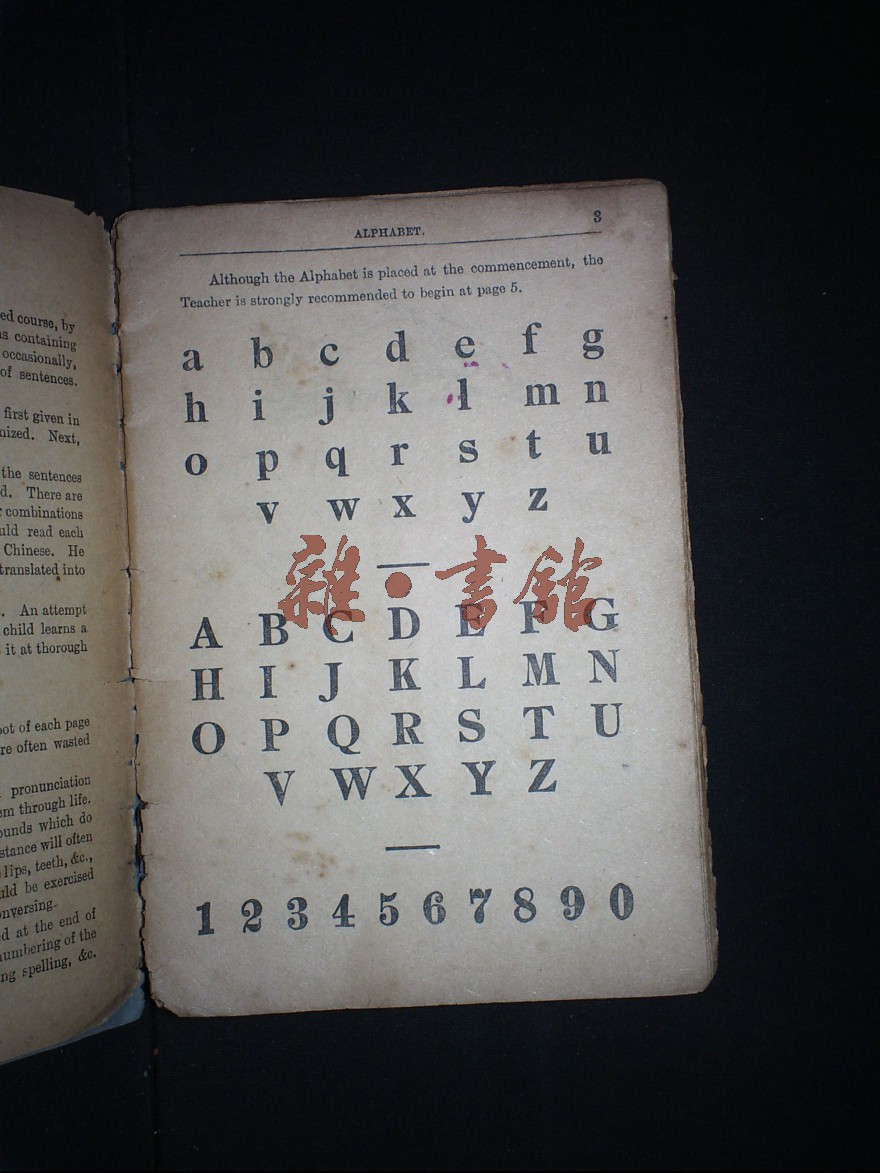 ed course, by
containing
occasionally,
of sentences.
first given in
Next,
the sentences
There are
combinations
read each
Chinese. He
translated into
An attempt
child learns a
it at thorough
of each page
often wasted
pronunciation
through life.
which do
will often
lips, teeth, &c.,
be exercised
at the end of
numbering of the
spelling, &c.
ALPHABET. 3
Although the Alphabet is placed at the commencement, the
Teacher is strongly recommended to begin at page 5.
a b c d e f g
h i j k l m n
o p q r s t u
v w x y z
雜·書館
A B C D E F G
H I J K L M N
O P Q R S T U
V W X Y Z
1 2 3 4 5 6 7 8 9 0